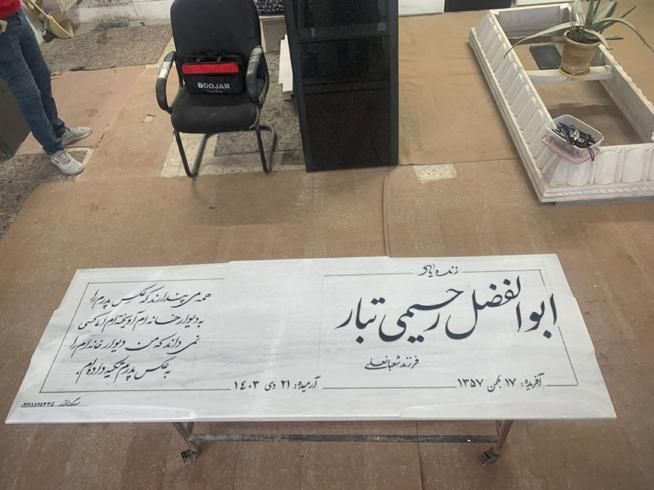 BOOJAR
زنده یاد
ابوالفضل رحیمی تبار
فرزند شعبانعلی
آفریده: ۱۷ بهمن ۱۳۵۷
آرمیده: ۲۱ دی ۱۴۰۳
همه می پندارند که عکس پدرم را
به دیوار خانه ام آویخته ام اما کسی
نمی داند که من دیوار خانه ام را
به عکس پدرم تکیه داده ام.